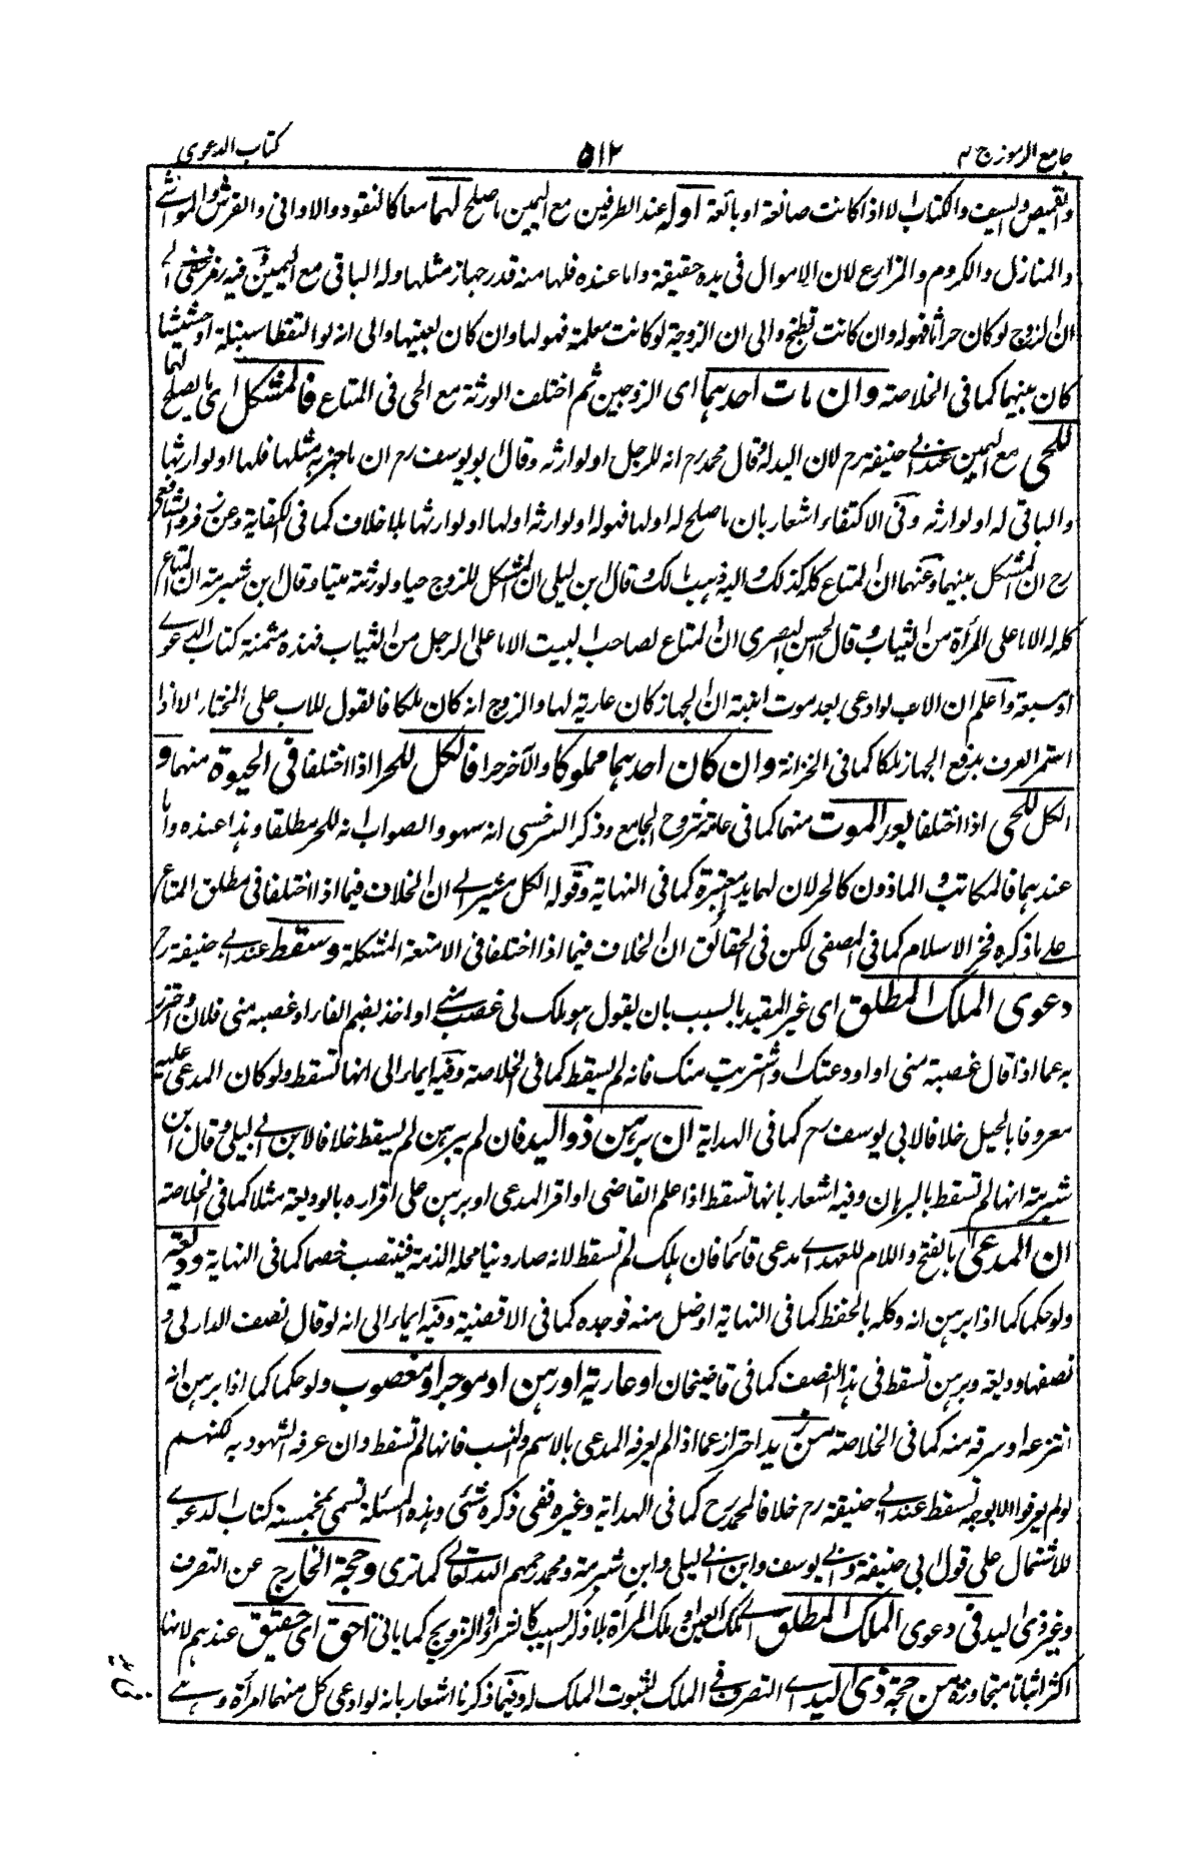 جامع الرموز ج ٢
٥١٢
كتاب الدعوى
والقميص والسيف والكتاب لا اذا كانت صانعة او بائعة او له عند الطرفين مع اليمين ما صلح لهما معا كالنقود والاوانى والفرش والمواشے
والمنازل والكروم والمزارع لان الاموال فى يده حقيقة واما عنده فلها منه قدر جهاز مثلها وله الباقى مع اليمين وفيه رمز خفى الے
ان الزوج لو كان حراثا فهو له وان كانت تطبخ والى ان الزوجة لو كانت معلمة فهو لها وان كان لعينها والى انه لو التقطا سنبلة او حشيشا
كان بينهما كما فى الخلاصة وان مات احدهما اى الزوجين ثم اختلف الورثة مع الحى فى المتاع فالمشكل اى ما يصلح لهما
للحى مع اليمين عند ابى حنيفة رح لان اليد له وقال محمد رح انه للرجل او لوارثه وقال ابو يوسف رح ان ما جهز به مثلها فلها او لوارثها
والباقى له او لوارثه وفى الاكتفاء اشعار بان ما صلح له او لها فهو له او لوارثه او لها او لوارثها بلا خلاف كما فى الكفاية وعن زفر والشافعى
رح ان المشكل بينهما وعنهما ان المتاع كله كذلك واليه ذهب مالك وقال ابن ليلى ان المشكل للزوج حيا ولورثته ميتا وقال ابن شبرمة ان المتاع
كله له الا ما على المرأة من الثياب وقال الحسن البصرى ان المتاع لصاحب البيت الا ما على الرجل من الثياب فهذه مثمنة كتاب الدعوے
او مسبعة واعلم ان الاب لو ادعى بعد موت ابنته ان الجهاز كان عارية لها والزوج انه كان ملكا فالقول للاب على المختار الا اذا
استمر العرف بدفع الجهاز ملكا كما فى الخزانة وان كان احدهما مملوكا والآخر حرا فالكل للحر اذا اختلفا فى الحيوة منهما و
الكل للحى اذا اختلفا بعد الموت منهما كما فى عامة شروح الجامع وذكر السرخسى انه سهو والصواب انه للحر مطلقا وهذا عنده واما
عندهما فالمكاتب والماذون كالحر لان لهما يد معتبرة كما فى النهاية وقوله الكل مشير الے ان الخلاف فيما اذا اختلفا فى مطلق المتاع
علے ما ذكره فخر الاسلام كما فى المصفى لكن فى الحقائق ان الخلاف فيما اذا اختلفا فى الامتعة المشكلة وسقط عند ابے حنيفة رح
دعوى الملك المطلق اى غير المقيد بالسبب بان يقول هو ملك لى غصب منے او اخذ بضم الفاء او غصبه منى فلان واحترز
به عما اذا قال غصبته منى او اودعتك او اشتريت منك فانه لم يسقط كما فى الخلاصة وفيه ايماء الى انها تسقط ولو كان المدعى عليه
معروفا بالحيل خلافا لابى يوسف رح كما فى الهداية ان برهن ذو اليد فان لم يبرهن لم يسقط خلافا لابن ابے ليلى وقال ابن
شبرمة انها لم تسقط بالبرهان وفيه اشعار بانها تسقط اذا علم القاضى او اقر المدعى او برهن على اقراره بالوديعة مثلا كما فى الخلاصة
ان المدعى بالفتح واللام للعهد اے مدعى قائما فان هلك لم تسقط لانه صار دينا محله الذمة فينتصب خصما كما فى النهاية وديعة
ولو حكما كما اذا برهن انه وكله بالحفظ كما فى النهاية او ضل منه فوجده كما فى الاقضية وفيه ايماء الى انه لو قال نصف الدار لى و
نصفها وديعة وبرهن تسقط فى هذا النصف كما فى قاضيخان او عارية او رهن او موجر او مغصوب ولو حكما كما اذا برهن انه
انتزعه او سرقه منه كما فى الخلاصة من زيد احتراز عما اذا لم يعرفه المدعى بالاسم والنسب فانها لم تسقط وان عرفه الشهود به لكنهم
لو لم يعرفوا الا بوجه تسقط عند ابے حنيفة رح خلافا لمحمد رح كما فى الهداية وغيره ففى ذكره شئى وهذه المسئلة تسمى مخمسة كتاب الدعوے
للاشتمال على قول ابى حنيفة وابے يوسف وابن ابے ليلى وابن شبرمة ومحمد رحمهم الله تعالے كما ترى وحجة الخارج عن التصرف
وغير ذى اليد فى دعوى الملك المطلق اے ملك العين او ملك المرأة بلا ذكر السبب كالشراء والتزويج كما ياتى احق اى حقيق عندهم لانها
اكثر اثباتا متجاوزة من حجة ذى اليد اے التصرف فے الملك لثبوت الملك له وفيما ذكرنا اشعار بانه لو ادعى كل منهما امرأة وهے